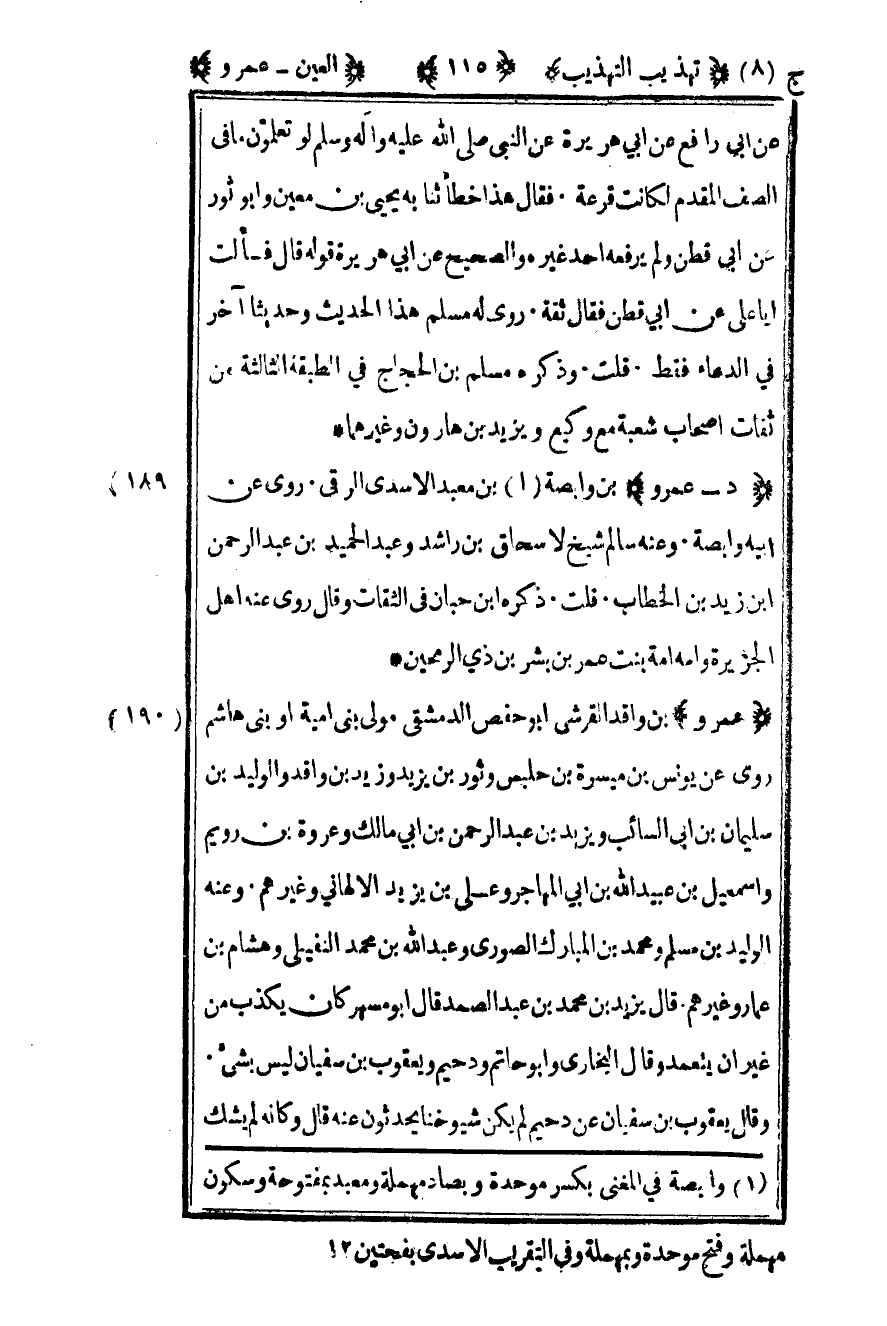 ج (٨) ﴿ تهذيب التهذيب ﴾ ﴿ ١١٥ ﴾ ﴿ العين - عمرو ﴾
عن ابي رافع عن ابي هريرة عن النبي صلى الله عليه وآله وسلم لو تعلمون ما فى
الصف المقدم لكانت قرعة ٠ فقال هذا خطأ ثنا به يحيى بن معين وابو ثور
عن ابي قطن ولم يرفعه احد غيره والصحيح عن ابي هريرة قوله قال فسألت
ابا على عن ابي قطن فقال ثقة ٠ روى له مسلم هذا الحديث وحديثا آخر
في الدعاء فقط ٠ قلت ٠ وذكره مسلم بن الحجاج في الطبقة الثالثة من
ثقات اصحاب شعبة مع وكيع ويزيد بن هارون وغيرهما *
﴿ د - عمرو ﴾ بن وابصة (١) بن معبد الاسدى الرقى ٠ روى عن (١٨٩)
ابيه وابصة ٠ وعنه سالم شيخ لاسحاق بن راشد وعبد الحميد بن عبد الرحمن
ابن زيد بن الخطاب ٠ قلت ٠ ذكره ابن حبان فى الثقات وقال روى عنه اهل
الجزيرة وامه امة بنت عمر بن بشر بن ذي الرمحين *
﴿ عمرو ﴾ بن واقد القرشى ابو حفص الدمشقى مولى بنى امية او بنى هاشم (١٩٠)
روى عن يونس بن ميسرة بن حلبس وثور بن يزيد وزيد بن واقد والوليد بن
سليمان بن ابى السائب ويزيد بن عبد الرحمن بن ابي مالك وعروة بن رويم
واسمعيل بن عبيد الله بن ابي المهاجر وعلى بن يزيد الالهاني وغيرهم ٠ وعنه
الوليد بن مسلم ومحمد بن المبارك الصورى وعبد الله بن محمد النفيلى وهشام بن
عمار وغيرهم ٠ قال يزيد بن محمد بن عبد الصمد قال ابو مسهر كان يكذب من
غير ان يتعمد وقال البخارى وابو حاتم ودحيم ويعقوب بن سفيان ليس بشئ ٠
وقال يعقوب بن سفيان عن دحيم لم يكن شيوخنا يحدثون عنه قال وكانه لم يشك
(١) وابصة في المغنى بكسر موحدة وبصاد مهملة ومعبد بمفتوحة وسكون
مهملة وفتح موحدة وبمهملة وفي التقريب الاسدى بفتحتين ١٢